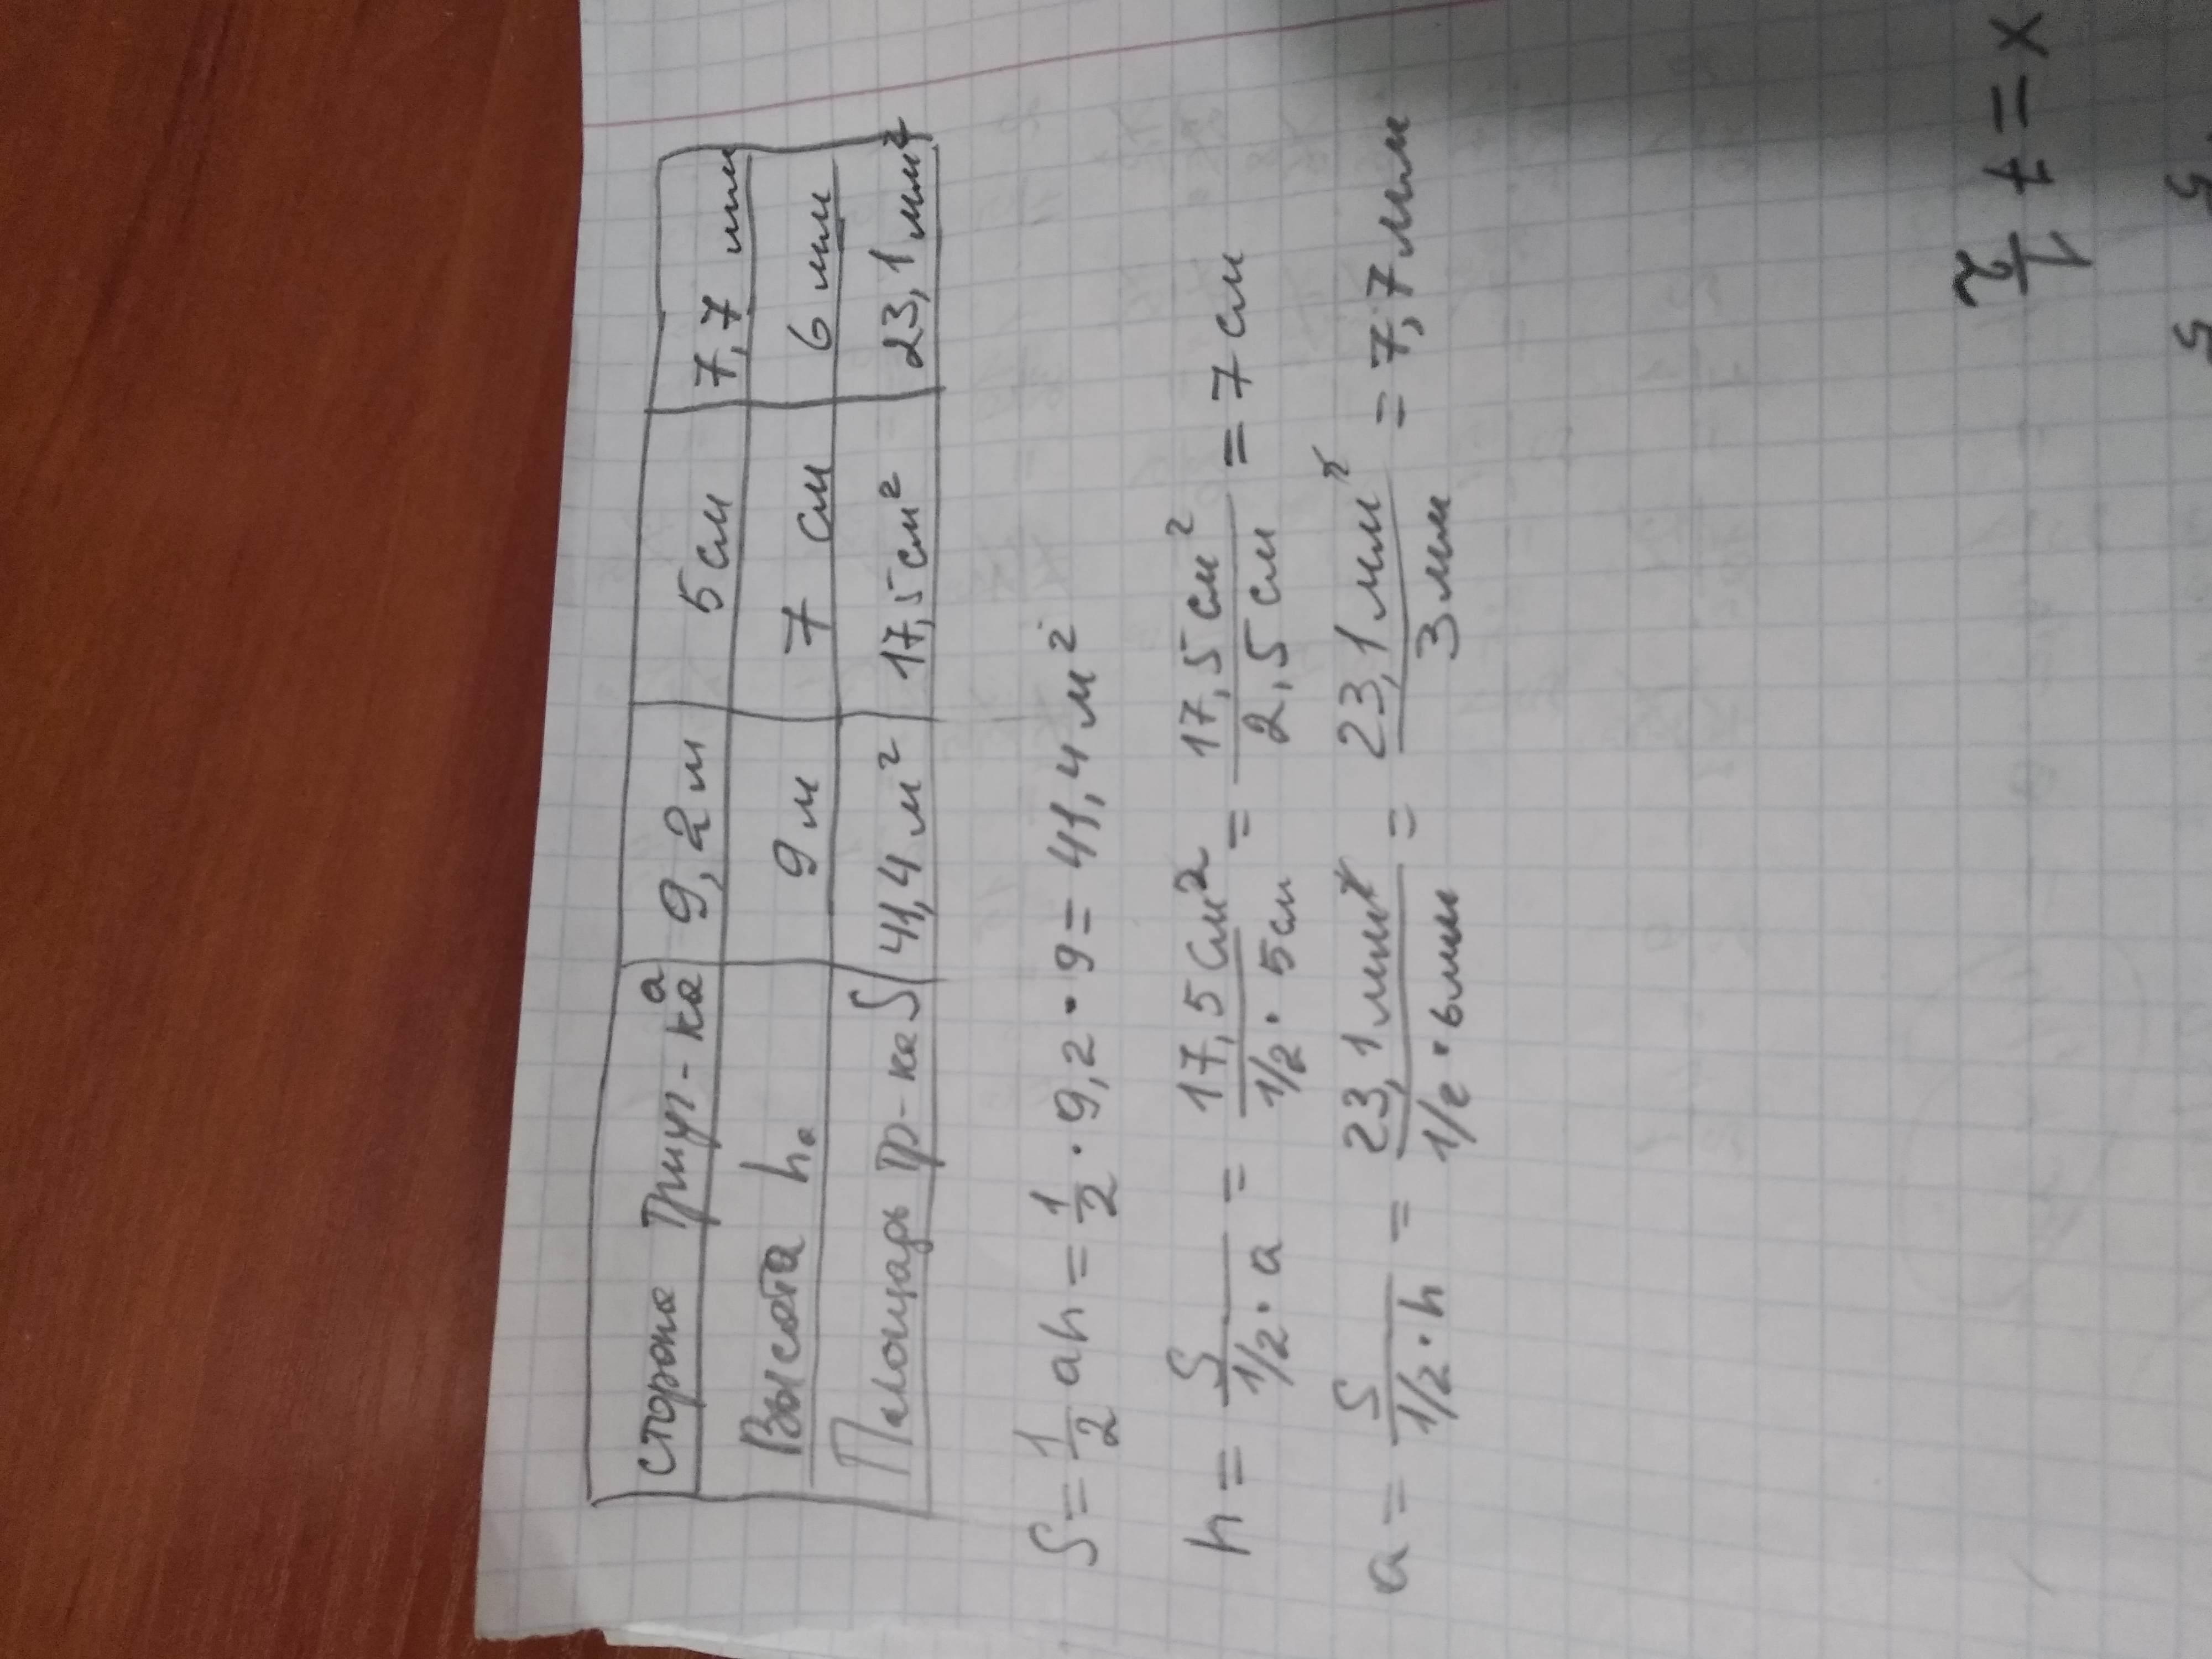 сторона Триуг-ка a 9,2 м 5 см 7,7 мм
Высота hₐ 9 м 7 см 6 мм
Площадь тр-ка S 41,4 м² 17,5 см² 23,1 мм²
S = 1/2 ah = 1/2 · 9,2 · 9 = 41,4 м²
h = S / 1/2 · a = 17,5 см² / 1/2 · 5 см = 17,5 см² / 2,5 см = 7 см
a = S / 1/2 · h = 23,1 мм² / 1/2 · 6 мм = 23,1 мм² / 3 мм = 7,7 мм
x = 7 1/2